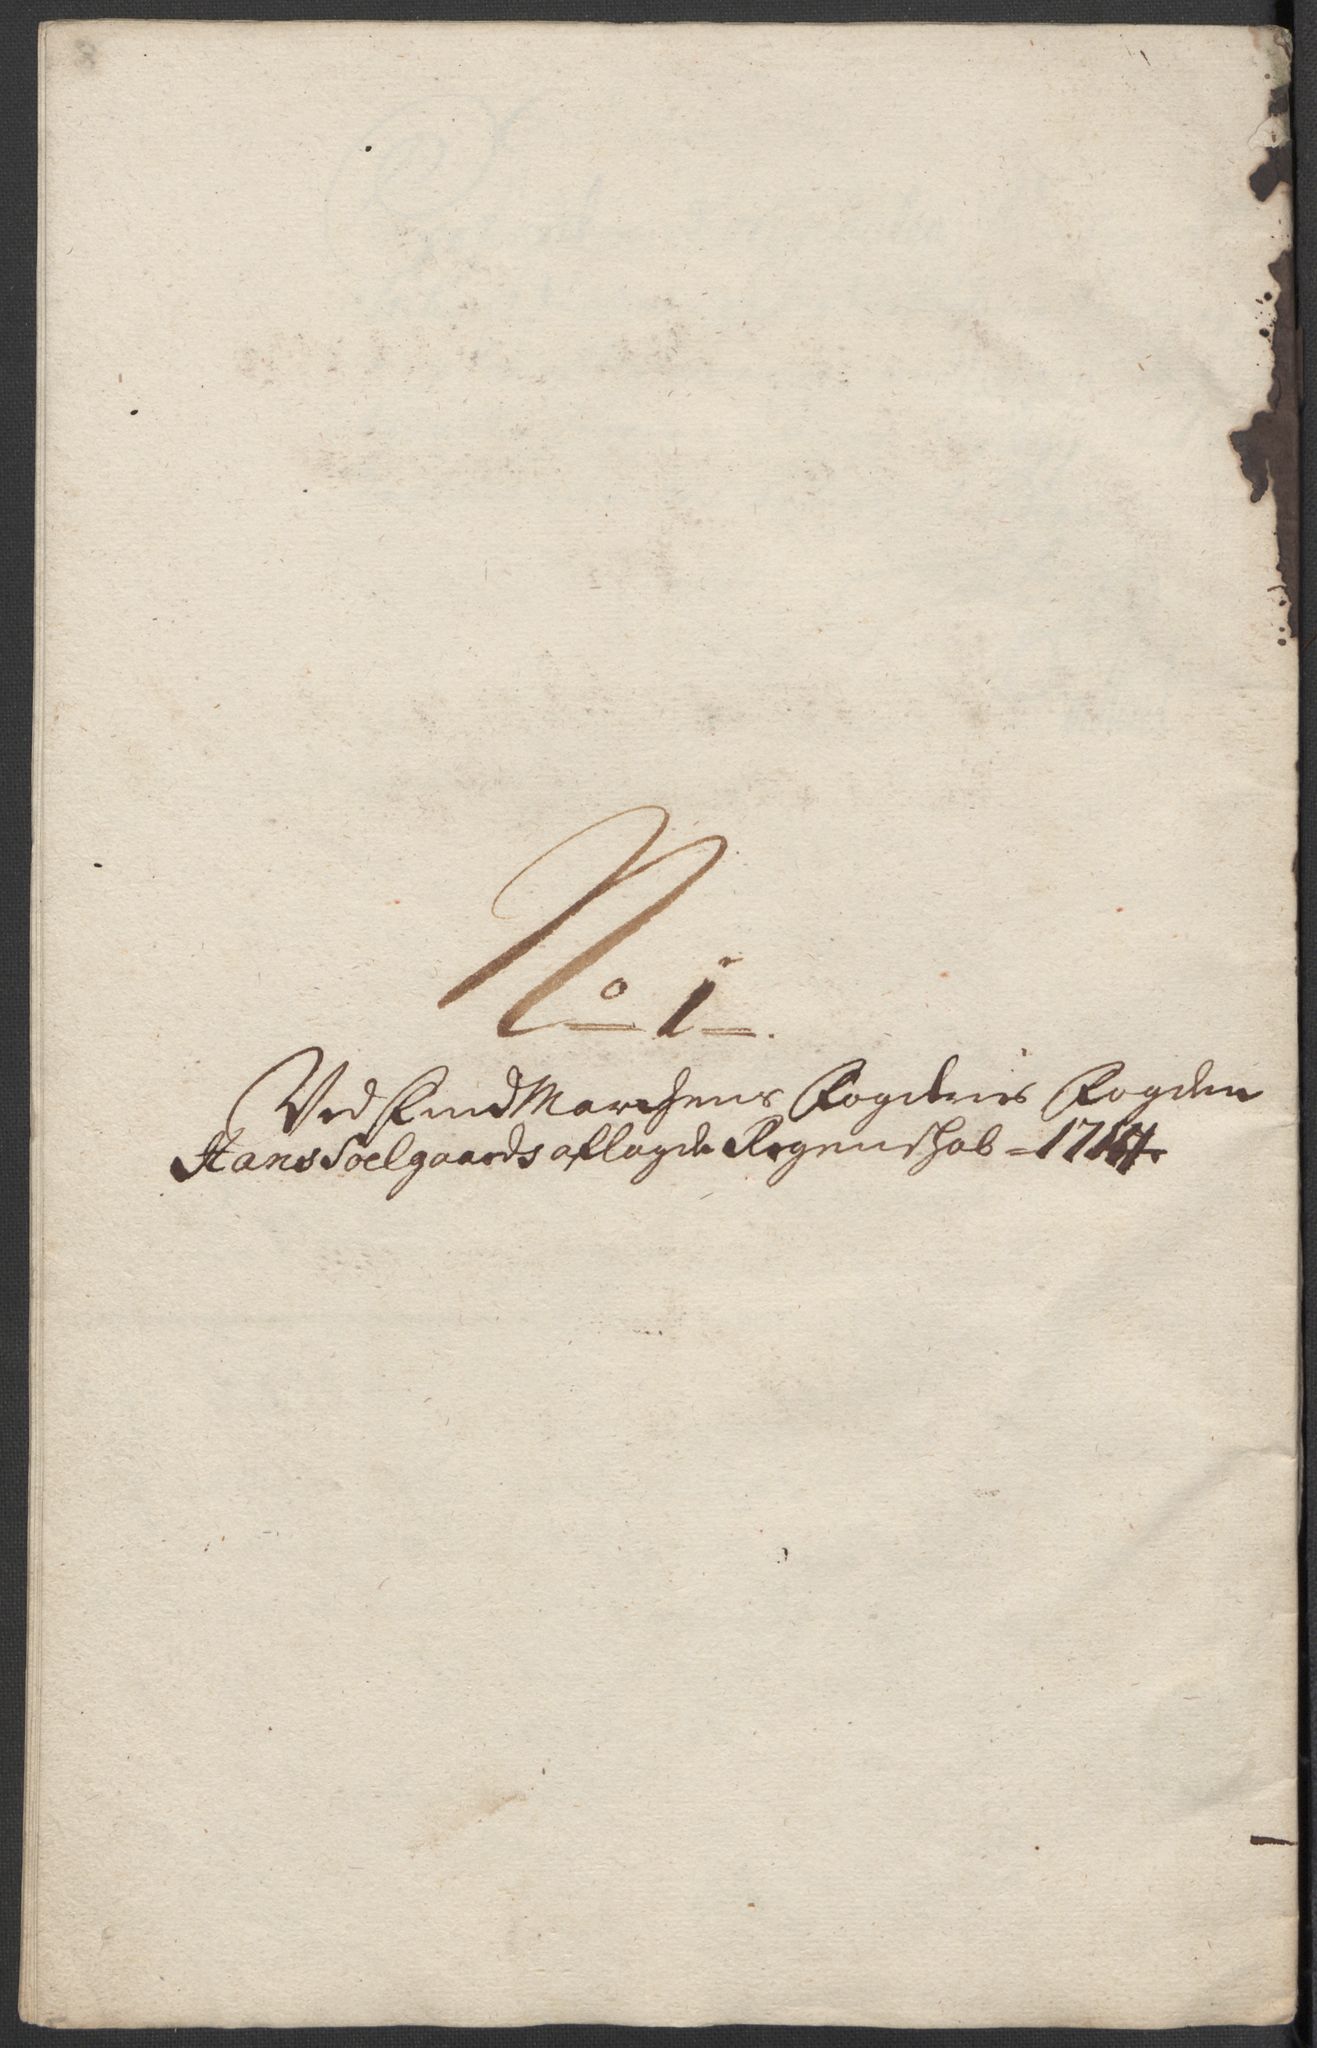 No 1.
Ved FindMarchens Fogderies Fogden
Hans Soelgaards aflagde Regenschab = 1714.